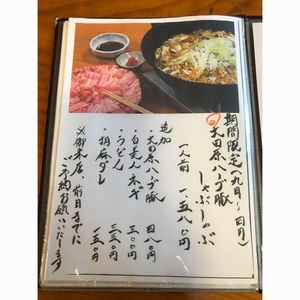 期間限定（九月〜四月）
大田原ハーブ豚
しゃぶしゃぶ
一人前 一五八〇円
追加
・大田原ハーブ豚 四八〇円
・白美人ネギ 三〇〇円
・うどん 三三〇円
・胡麻ダレ 一五〇円
※御来店、前日までに
ご予約お願いいたします